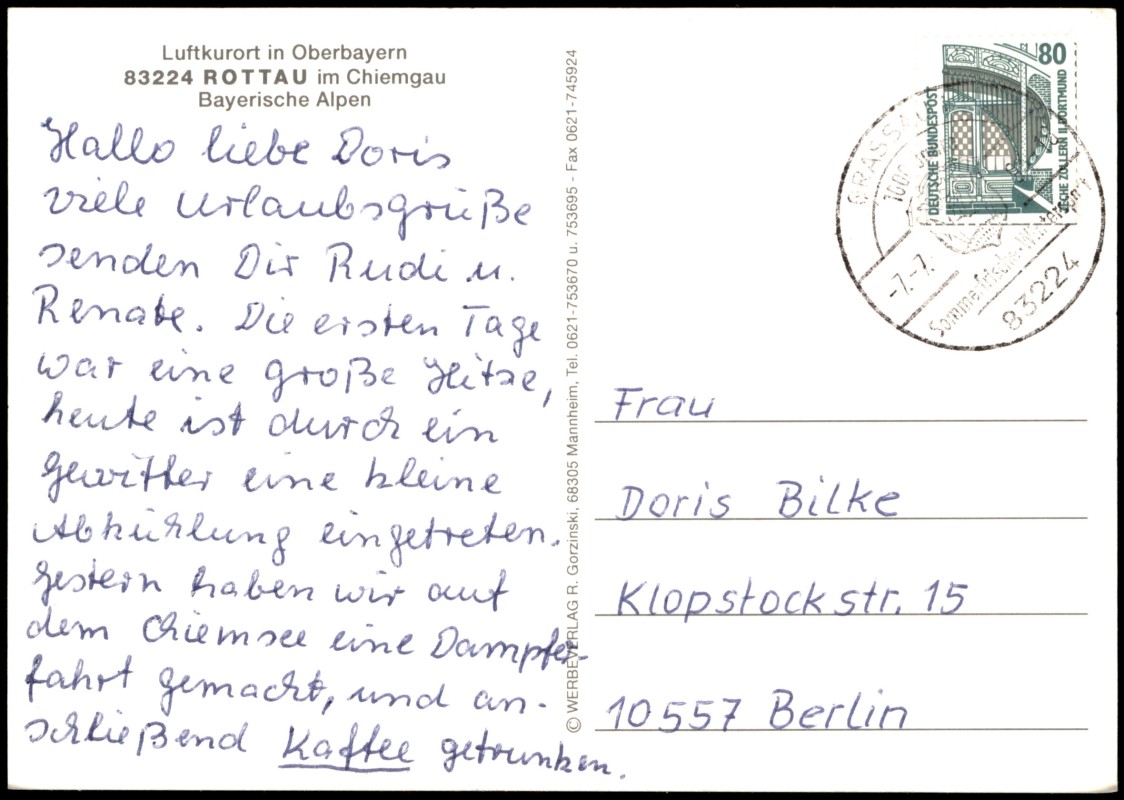 Luftkurort in Oberbayern
83224 ROTTAU im Chiemgau
Bayerische Alpen
Hallo liebe Doris
viele Urlaubsgrüße
senden Dir Rudi u.
Renate. Die ersten Tage
war eine große Hitze,
heute ist durch ein
Gewitter eine kleine
Abkühlung eingetreten.
Gestern haben wir auf
dem Chiemsee eine Dampfer-
fahrt gemacht, und an-
schließend Kaffee getrunken.
© WERBEVERLAG R. Gorzinski, 68305 Mannheim, Tel. 0621-753670 u. 753695 - Fax 0621-745924
80
DEUTSCHE BUNDESPOST
ZECHE ZOLLERN II DORTMUND
-7.-7.
Sommerfrische-Wintersport
83224
Frau
Doris Bilke
Klopstockstr. 15
10557 Berlin